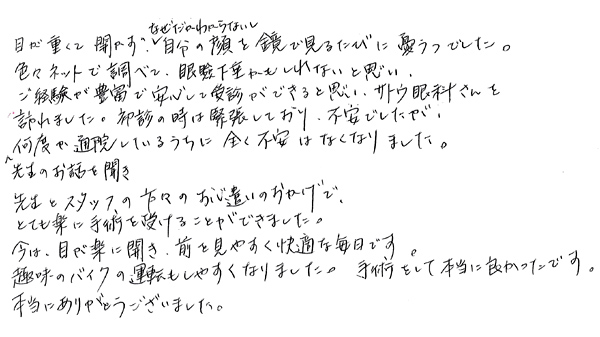 なぜだかわからないし
目が重くて開かず、自分の顔を鏡で見るたびに憂うつでした。
色々ネットで調べて、眼瞼下垂かもしれないと思い、
ご経験が豊富で安心して受診ができると思い、サトウ眼科さんを
訪れました。初診の時は緊張しており、不安でしたが、
何度か通院しているうちに全く不安はなくなりました。
先生のお話を聞き
先生とスタッフの方々のお心遣いのおかげで、
とても楽に手術を受けることができました。
今は、目が楽に開き、前を見やすく快適な毎日です。
趣味のバイクの運転もしやすくなりました。 手術をして本当に良かったです。
本当にありがとうございました。